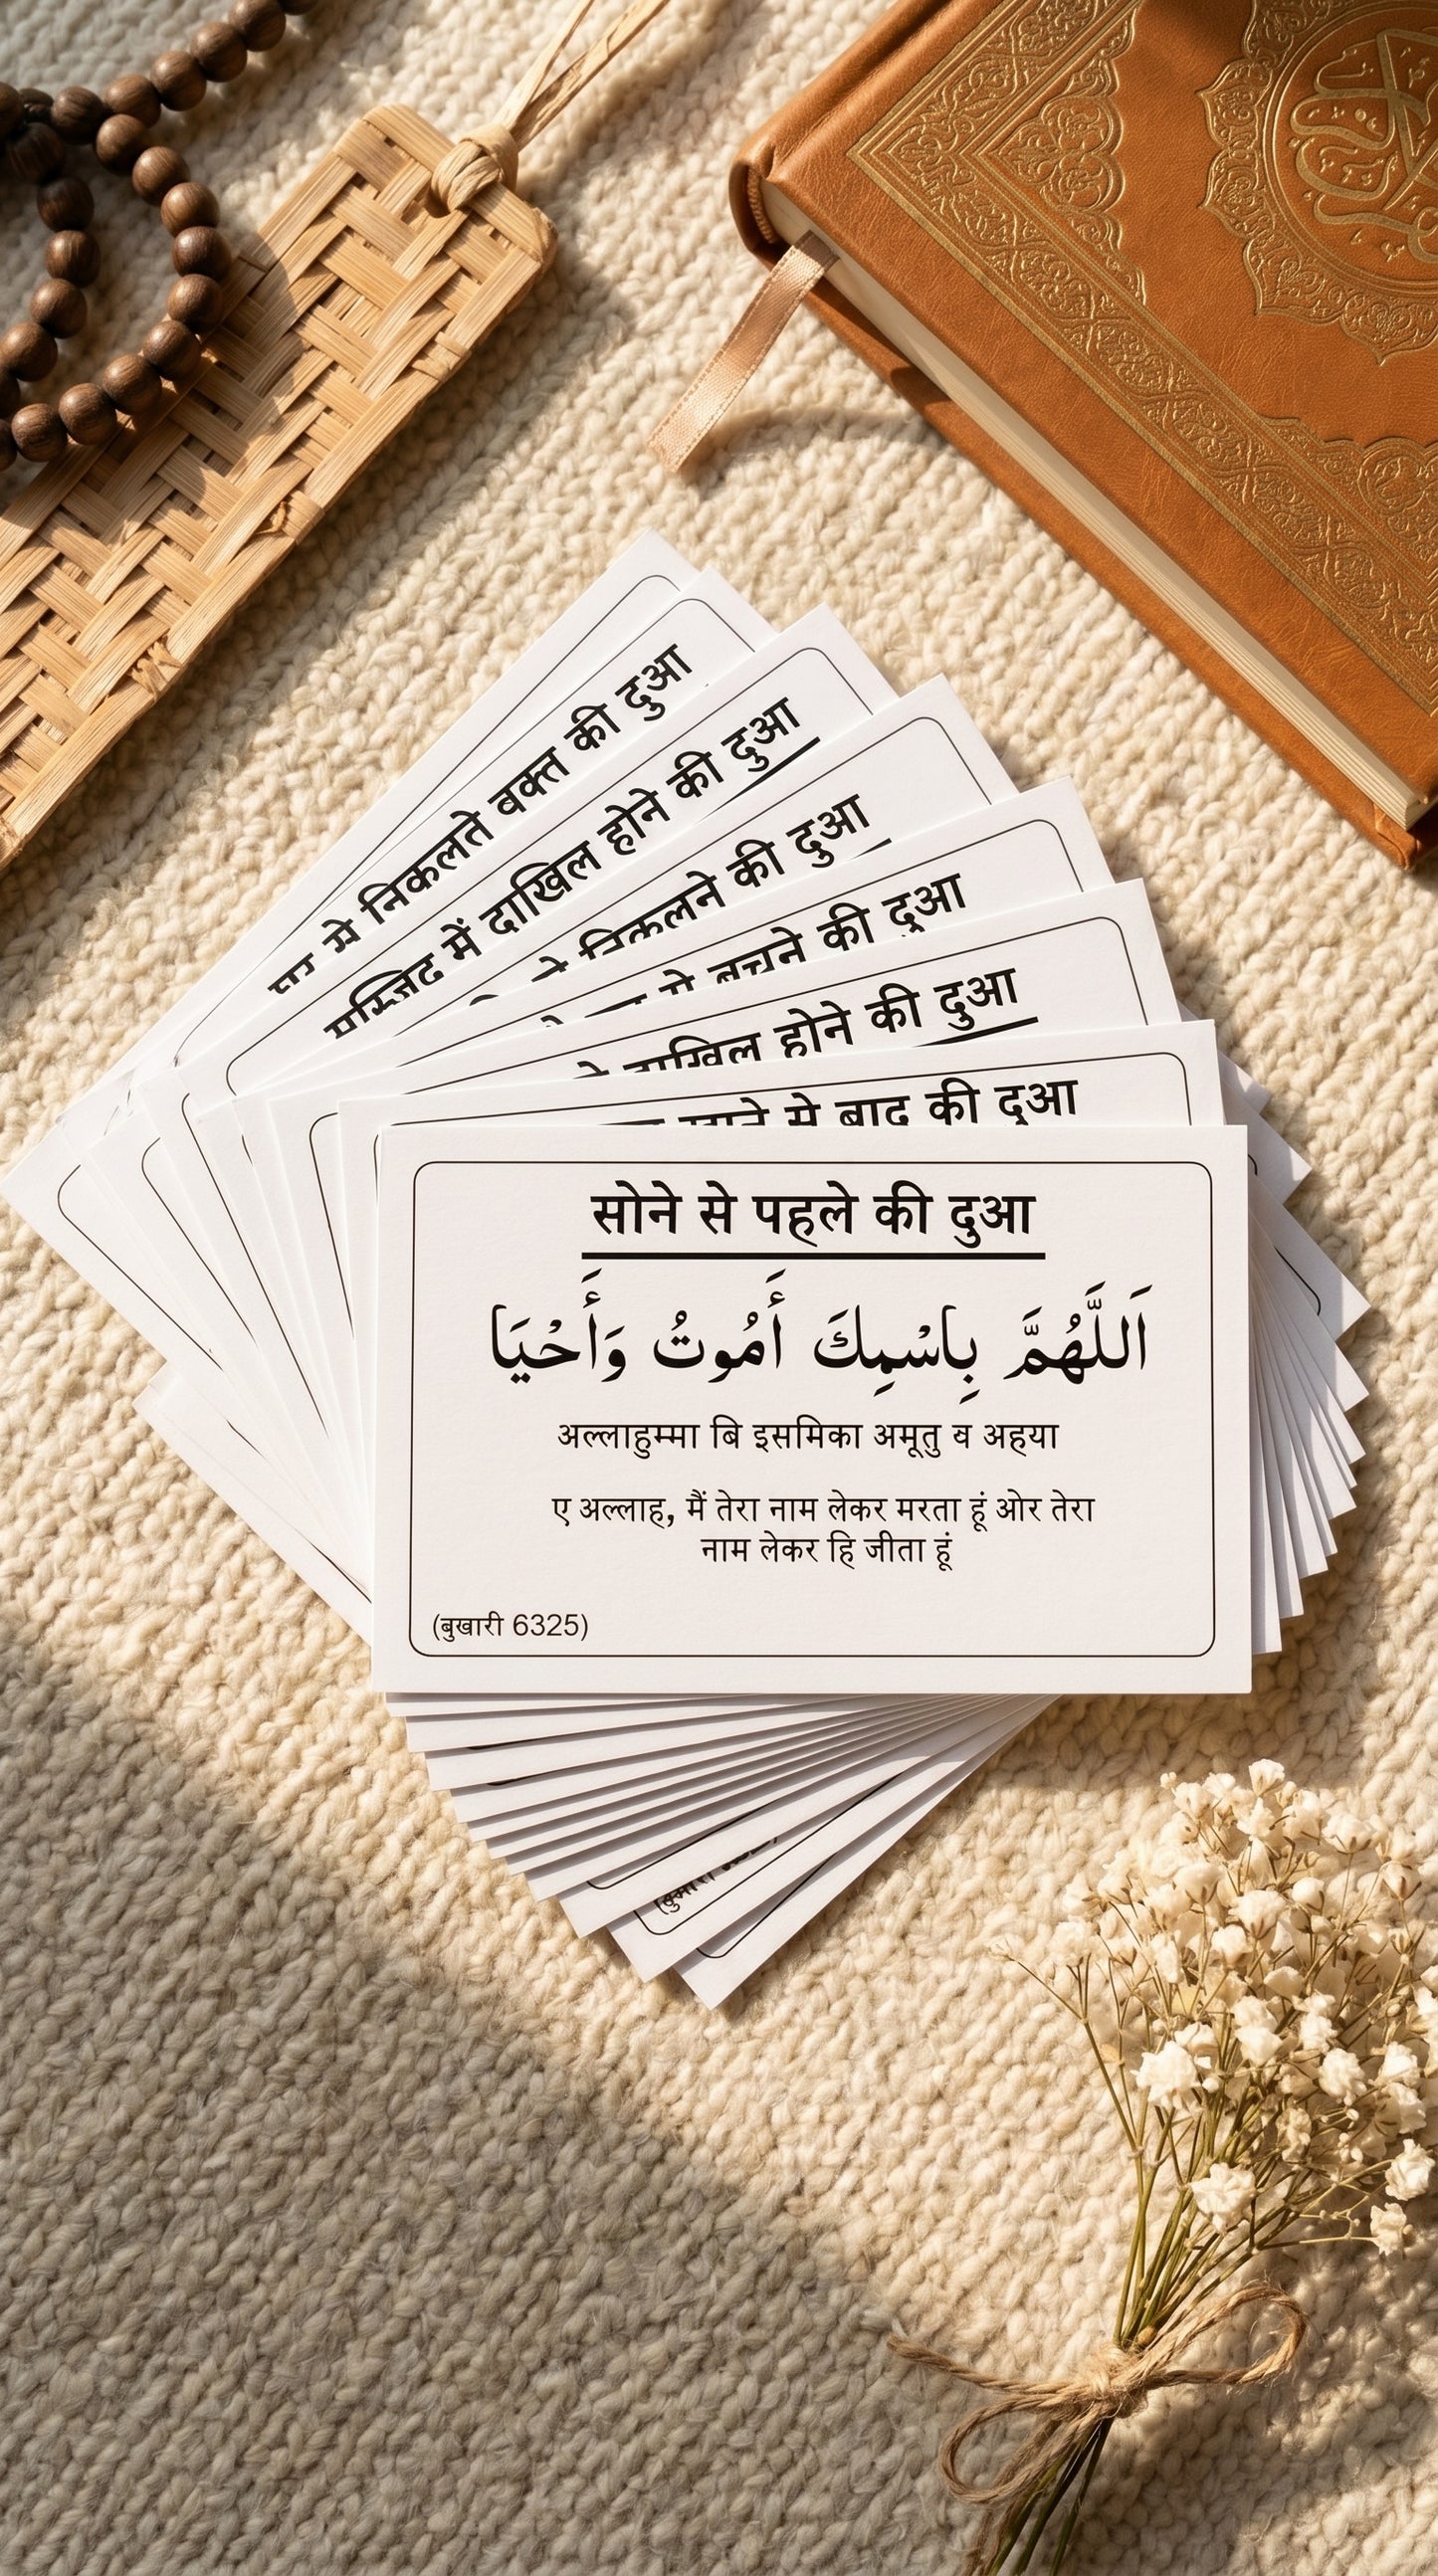 से निकलते वक्त की दुआ
मस्जिद में दाखिल होने की दुआ
से निकलने की दुआ
से बचने की दुआ
दाखिल होने की दुआ
खाने से बाद की दुआ
सोने से पहले की दुआ
اَللَّهُمَّ بِاسْمِكَ أَمُوتُ وَأَحْيَا
अल्लाहुम्मा बि इसमिका अमूतु व अहया
ए अल्लाह, मैं तेरा नाम लेकर मरता हूं ओर तेरा
नाम लेकर हि जीता हूं
(बुखारी 6325)